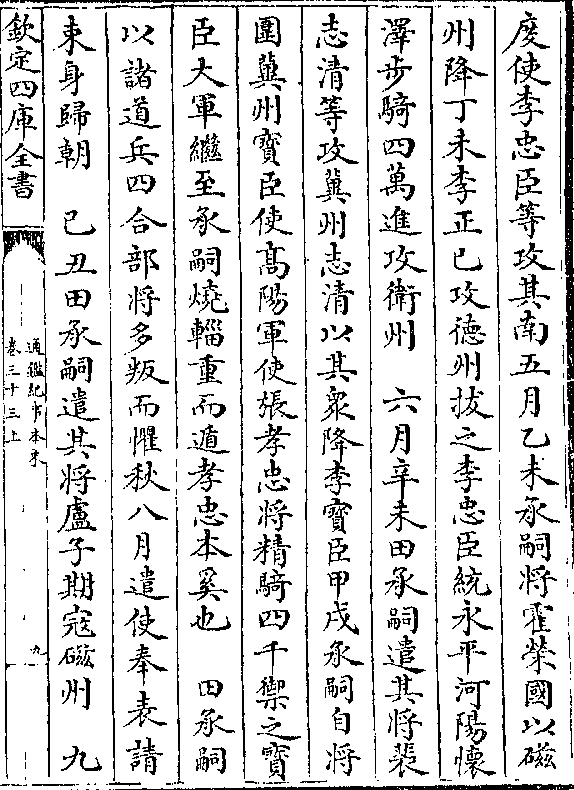 度使李忠臣等攻其南五月乙未承嗣將霍榮國以磁
州降丁未李正已攻德州拔之李忠臣統永平河陽懷
澤步騎四萬進攻衛州　六月辛未田承嗣遣其將裴
志清等攻冀州志清以其衆降李寶臣甲戌承嗣自將
圍冀州寶臣使髙陽軍使張孝忠將精騎四千禦之寶
臣大軍繼至承嗣燒輜重而遁孝忠本奚也　田承嗣
以諸道兵四合部將多叛而懼秋八月遣使奉表請
束身歸朝　已丑田承嗣遣其將盧子期寇磁州　九
欽定四庫全書
通鑑紀事本末
卷三十三上
九